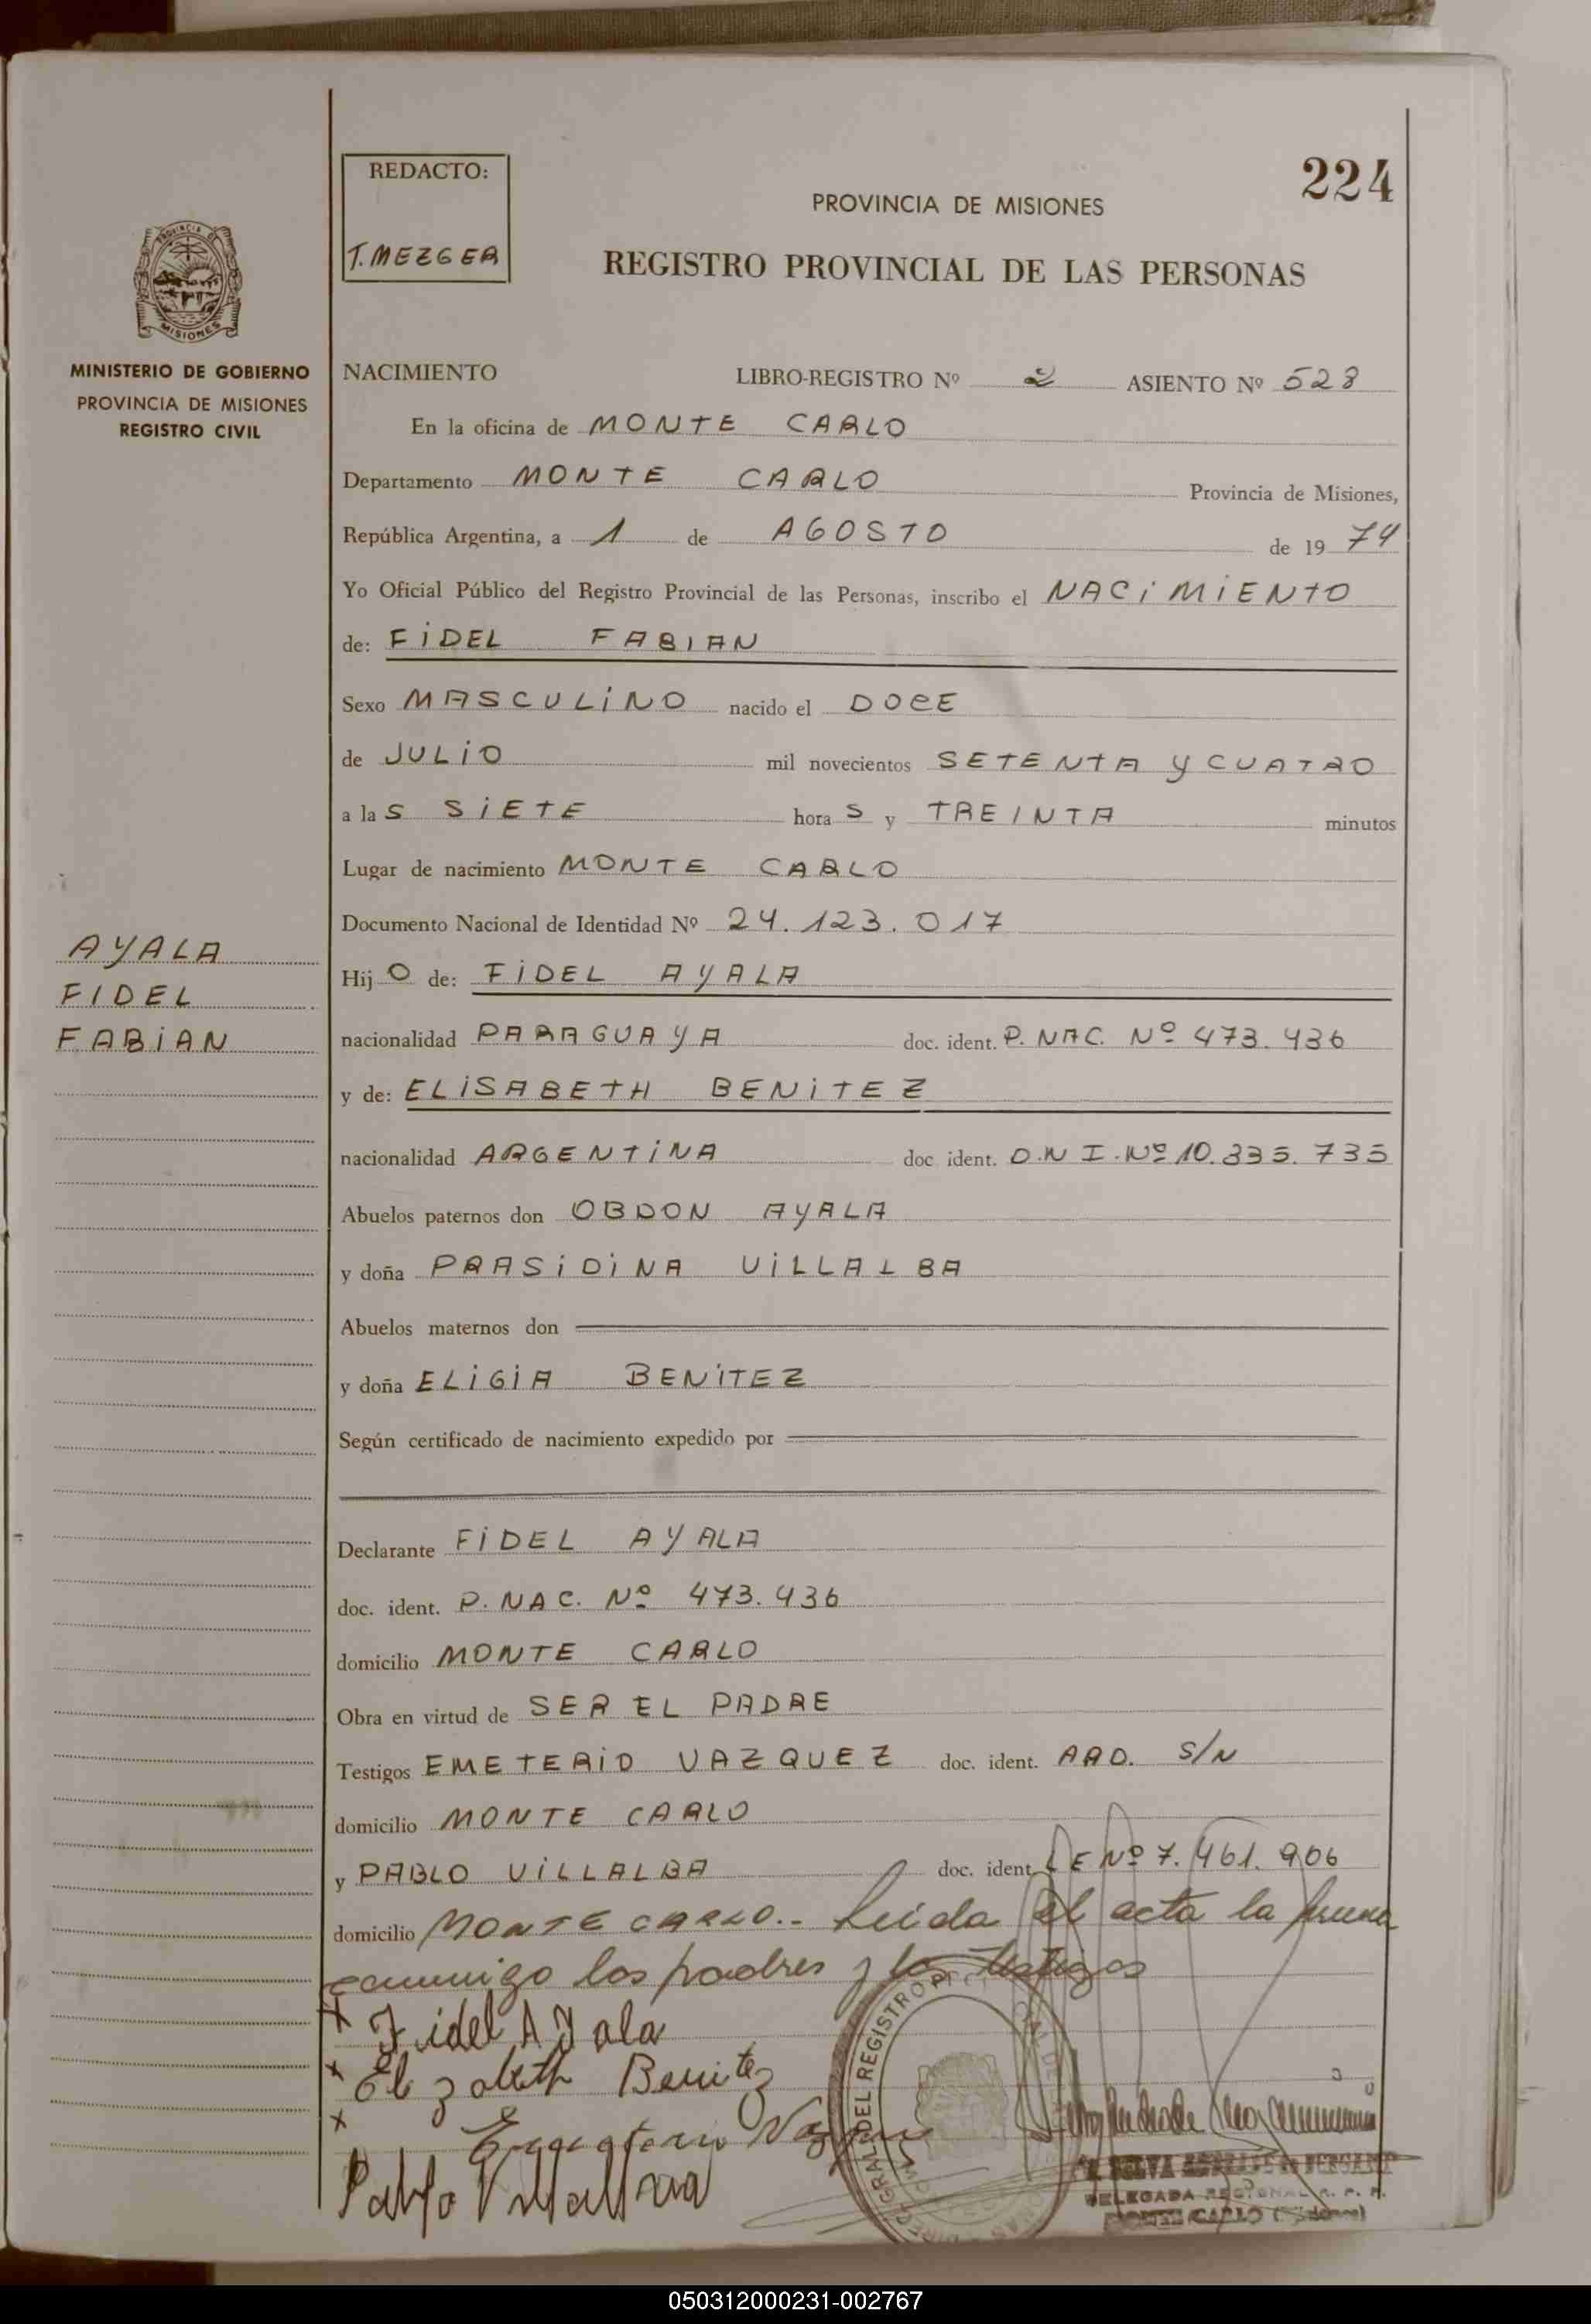 REDACTO:
T. MEZGER
224
PROVINCIA DE MISIONES
REGISTRO PROVINCIAL DE LAS PERSONAS
PROVINCIA DE
MISIONES
MINISTERIO DE GOBIERNO
PROVINCIA DE MISIONES
REGISTRO CIVIL
NACIMIENTO LIBRO-REGISTRO Nº 2 ASIENTO Nº 528
En la oficina de MONTE CARLO
Departamento MONTE CARLO Provincia de Misiones,
República Argentina, a 1 de AGOSTO de 19 74
Yo Oficial Público del Registro Provincial de las Personas, inscribo el NACIMIENTO
de: FIDEL FABIAN
Sexo MASCULINO nacido el DOCE
de JULIO mil novecientos SETENTA Y CUATRO
a las SIETE horas y TREINTA minutos
Lugar de nacimiento MONTE CARLO
Documento Nacional de Identidad Nº 24.123.017
AYALA
FIDEL
FABIAN
Hijo de: FIDEL AYALA
nacionalidad PARAGUAYA doc. ident. P. NAC. Nº 473.436
y de: ELISABETH BENITEZ
nacionalidad ARGENTINA doc ident. D.N I. Nº 10.335.735
Abuelos paternos don OBDON AYALA
y doña PRASIDINA VILLALBA
Abuelos maternos don
y doña ELIGIA BENITEZ
Según certificado de nacimiento expedido por
Declarante FIDEL AYALA
doc. ident. P. NAC. Nº 473.436
domicilio MONTE CARLO
Obra en virtud de SER EL PADRE
Testigos EMETERIO VAZQUEZ doc. ident. ARD. S/N
domicilio MONTE CARLO
y PABLO VILLALBA doc. ident. LE Nº 7.461.906
domicilio MONTE CARLO.- Leida el acta la firman
conmigo los padres y los testigos
x Fidel Ayala
x Elizabeth Benitez
x
Pablo Villalba
DEL REGISTRO
DELEGADA REGIONAL R. P. P.
MONTE CARLO (Misiones)
050312000231-002767